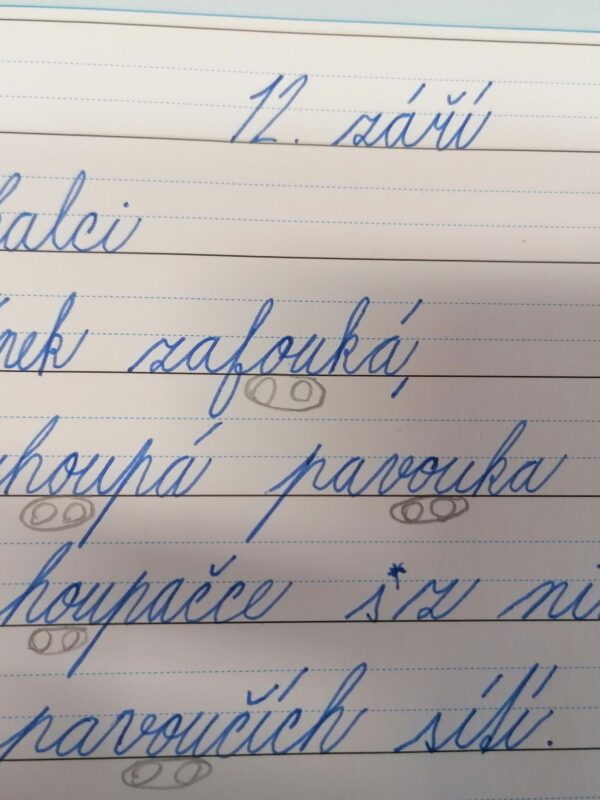 12. září
alci
nek zafouká,
houpá pavouka
houpačce s*z ni
pavoučích sítí.